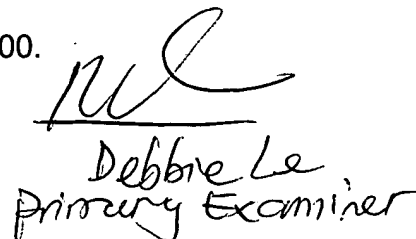 00.
Debbie Le
Primary Examiner